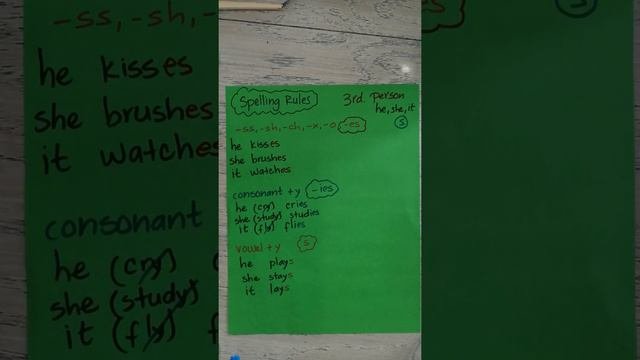 Spelling Rules
3rd. person
he, she, it
s
-ss, -sh, -ch, -x, -o, -es
he kisses
she brushes
it watches
consonant + y -ies
he (cry) cries
she (study) studies
it (fly) flies
vowel + y s
he plays
she stays
it lays